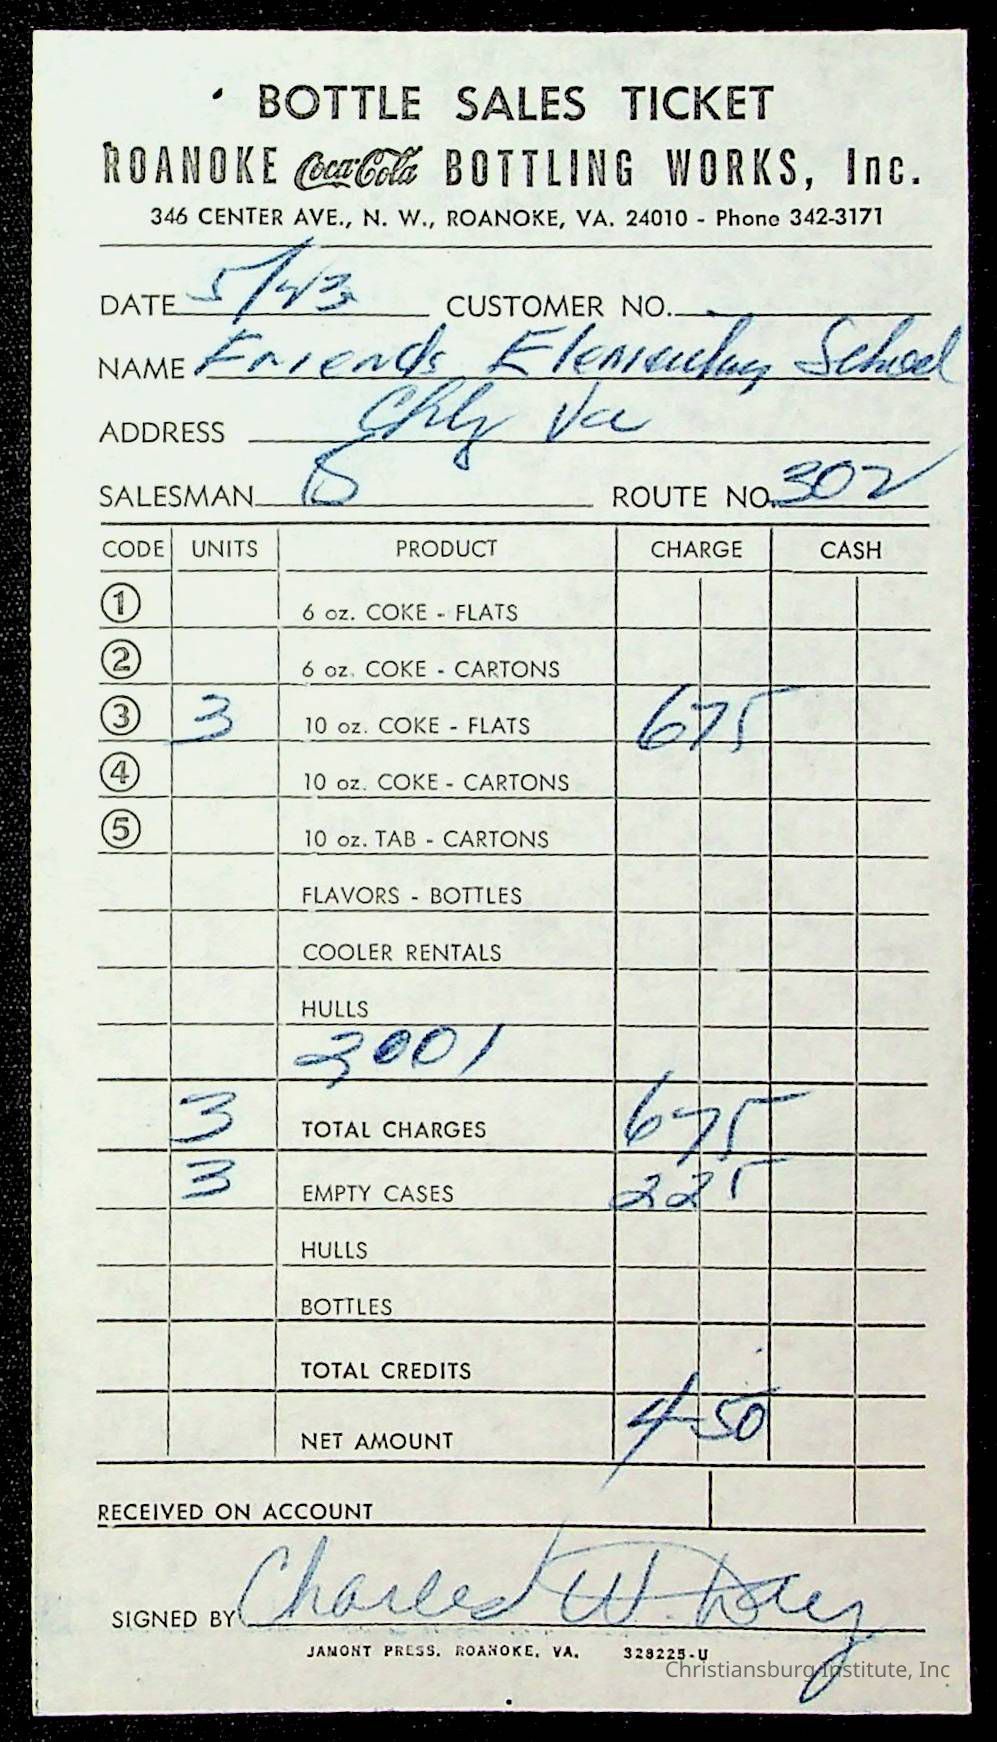 BOTTLE SALES TICKET
ROANOKE Coca-Cola BOTTLING WORKS, Inc.
346 CENTER AVE., N. W., ROANOKE, VA. 24010 - Phone 342-3171
DATE CUSTOMER NO.
NAME Friends Elementary School
ADDRESS Va
SALESMAN ROUTE NO. 302
CODE UNITS PRODUCT CHARGE CASH
1 6 oz. COKE - FLATS
2 6 oz. COKE - CARTONS
3 3 10 oz. COKE - FLATS 675
4 10 oz. COKE - CARTONS
5 10 oz. TAB - CARTONS
FLAVORS - BOTTLES
COOLER RENTALS
HULLS
3001
3 TOTAL CHARGES 675
3 EMPTY CASES 225
HULLS
BOTTLES
TOTAL CREDITS
NET AMOUNT 4 50
RECEIVED ON ACCOUNT
SIGNED BY Charles W. Day
JAMONT PRESS, ROANOKE, VA. 328225-U
Christiansburg Institute, Inc